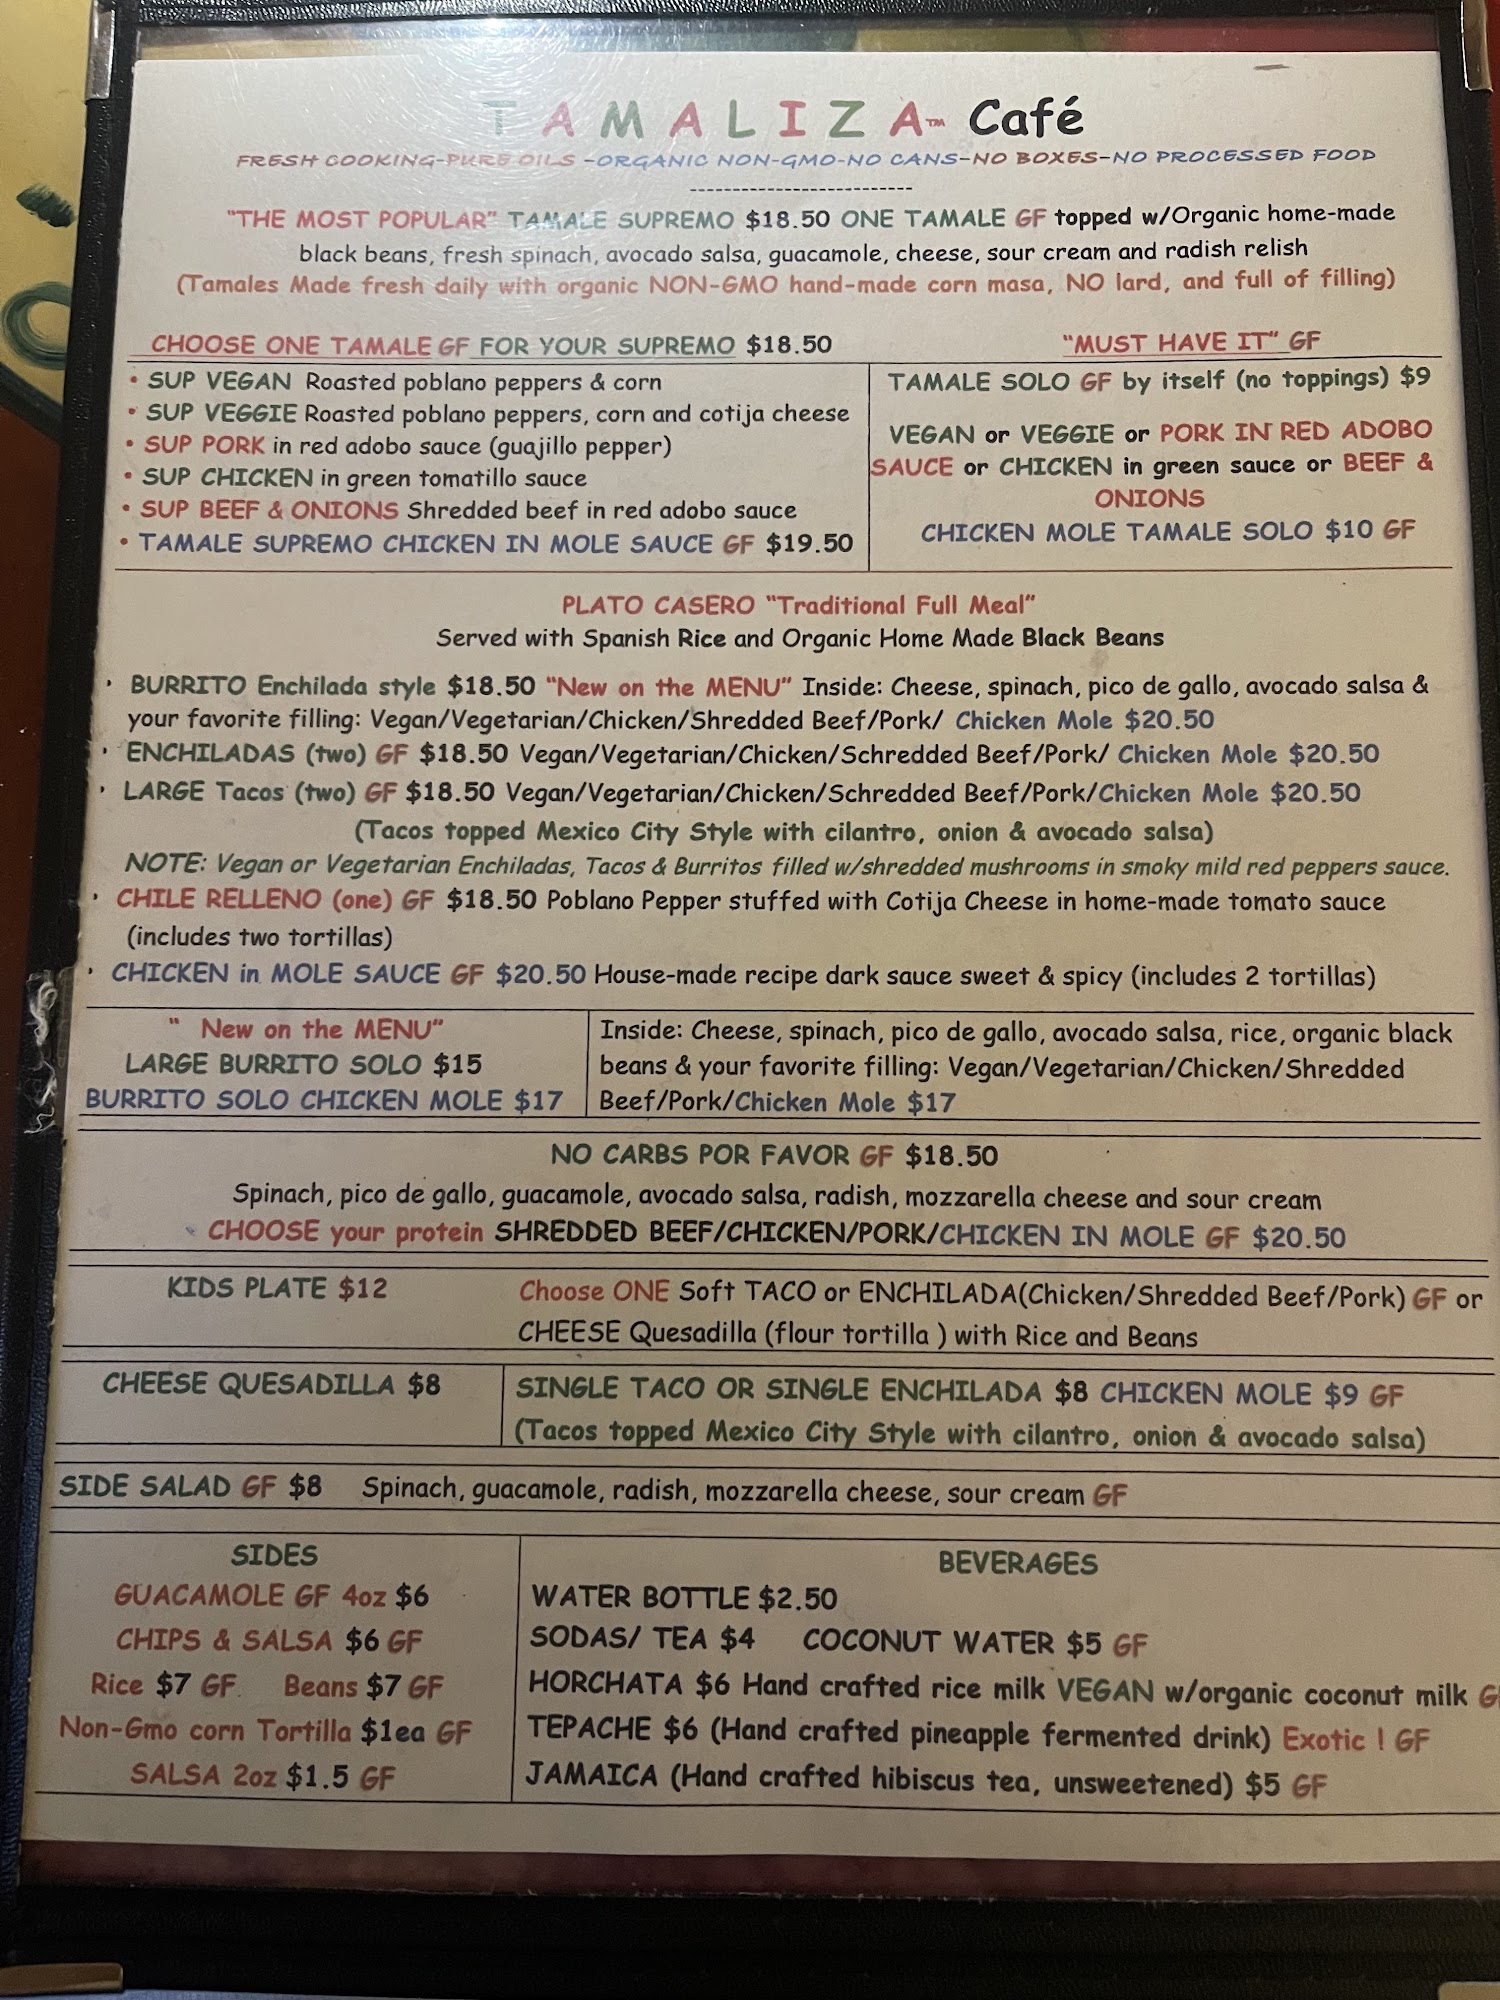 TAMALIZA™ Café
FRESH COOKING-PURE OILS -ORGANIC NON-GMO-NO CANS-NO BOXES-NO PROCESSED FOOD
--------------------------
"THE MOST POPULAR" TAMALE SUPREMO $18.50 ONE TAMALE GF topped w/Organic home-made
black beans, fresh spinach, avocado salsa, guacamole, cheese, sour cream and radish relish
(Tamales Made fresh daily with organic NON-GMO hand-made corn masa, NO lard, and full of filling)
CHOOSE ONE TAMALE GF FOR YOUR SUPREMO $18.50
• SUP VEGAN Roasted poblano peppers & corn
• SUP VEGGIE Roasted poblano peppers, corn and cotija cheese
• SUP PORK in red adobo sauce (guajillo pepper)
• SUP CHICKEN in green tomatillo sauce
• SUP BEEF & ONIONS Shredded beef in red adobo sauce
• TAMALE SUPREMO CHICKEN IN MOLE SAUCE GF $19.50
"MUST HAVE IT" GF
TAMALE SOLO GF by itself (no toppings) $9
VEGAN or VEGGIE or PORK IN RED ADOBO
SAUCE or CHICKEN in green sauce or BEEF &
ONIONS
CHICKEN MOLE TAMALE SOLO $10 GF
PLATO CASERO "Traditional Full Meal"
Served with Spanish Rice and Organic Home Made Black Beans
• BURRITO Enchilada style $18.50 "New on the MENU" Inside: Cheese, spinach, pico de gallo, avocado salsa &
your favorite filling: Vegan/Vegetarian/Chicken/Shredded Beef/Pork/ Chicken Mole $20.50
• ENCHILADAS (two) GF $18.50 Vegan/Vegetarian/Chicken/Schredded Beef/Pork/ Chicken Mole $20.50
• LARGE Tacos (two) GF $18.50 Vegan/Vegetarian/Chicken/Schredded Beef/Pork/Chicken Mole $20.50
(Tacos topped Mexico City Style with cilantro, onion & avocado salsa)
NOTE: Vegan or Vegetarian Enchiladas, Tacos & Burritos filled w/shredded mushrooms in smoky mild red peppers sauce.
• CHILE RELLENO (one) GF $18.50 Poblano Pepper stuffed with Cotija Cheese in home-made tomato sauce
(includes two tortillas)
• CHICKEN in MOLE SAUCE GF $20.50 House-made recipe dark sauce sweet & spicy (includes 2 tortillas)
" New on the MENU"
LARGE BURRITO SOLO $15
BURRITO SOLO CHICKEN MOLE $17
Inside: Cheese, spinach, pico de gallo, avocado salsa, rice, organic black
beans & your favorite filling: Vegan/Vegetarian/Chicken/Shredded
Beef/Pork/Chicken Mole $17
NO CARBS POR FAVOR GF $18.50
Spinach, pico de gallo, guacamole, avocado salsa, radish, mozzarella cheese and sour cream
CHOOSE your protein SHREDDED BEEF/CHICKEN/PORK/CHICKEN IN MOLE GF $20.50
KIDS PLATE $12
Choose ONE Soft TACO or ENCHILADA(Chicken/Shredded Beef/Pork) GF or
CHEESE Quesadilla (flour tortilla ) with Rice and Beans
CHEESE QUESADILLA $8
SINGLE TACO OR SINGLE ENCHILADA $8 CHICKEN MOLE $9 GF
(Tacos topped Mexico City Style with cilantro, onion & avocado salsa)
SIDE SALAD GF $8 Spinach, guacamole, radish, mozzarella cheese, sour cream GF
SIDES
GUACAMOLE GF 4oz $6
CHIPS & SALSA $6 GF
Rice $7 GF. Beans $7 GF
Non-Gmo corn Tortilla $1ea GF
SALSA 2oz $1.5 GF
BEVERAGES
WATER BOTTLE $2.50
SODAS/ TEA $4 COCONUT WATER $5 GF
HORCHATA $6 Hand crafted rice milk VEGAN w/organic coconut milk G
TEPACHE $6 (Hand crafted pineapple fermented drink) Exotic ! GF
JAMAICA (Hand crafted hibiscus tea, unsweetened) $5 GF